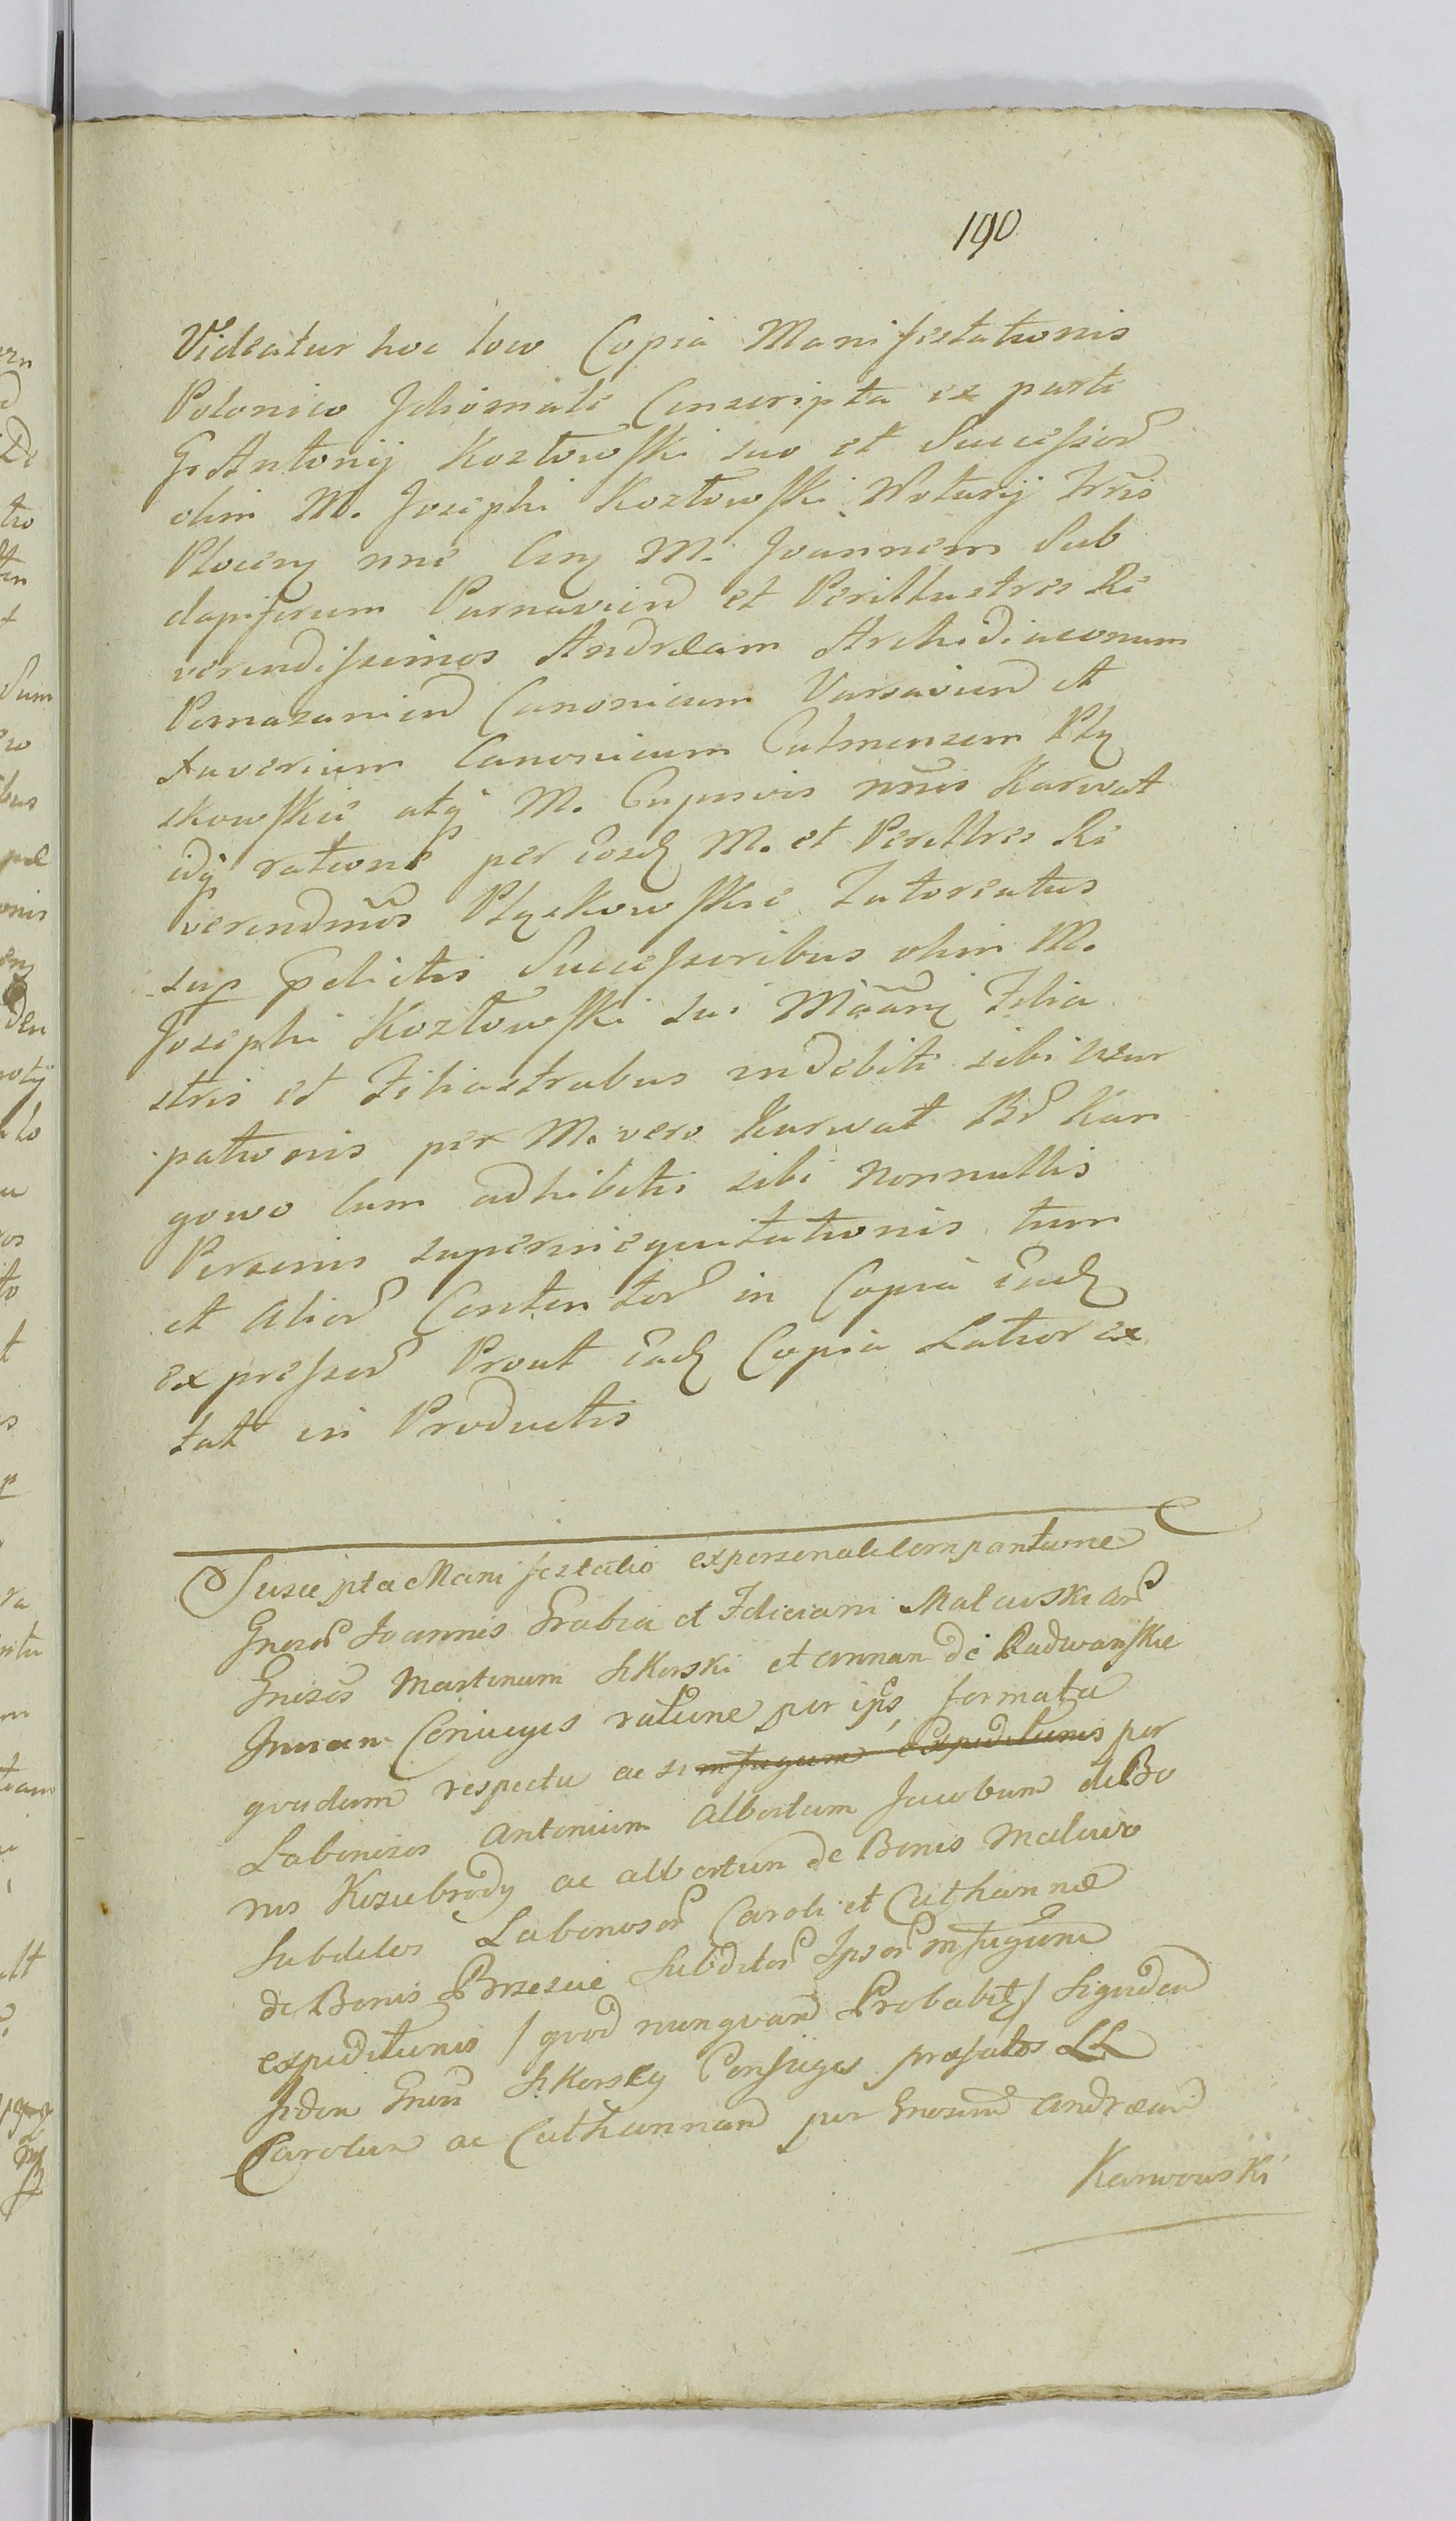 190
Videatur hoc loco Copia Manifestationis
Polonico Jdiomate Conscripta ex parte
G. Antonij Kozłowski suo et Successor
olim M. Josephi Kozłowski Notarij Trris
Plocen nne Cin M. Joannem Sub
dapiferum Parnavien et Perillustres Re
verendissimos Andræam Archidiaconum
Pomazanien Canonicum Varsavien et
Xaverium Canonicum Culmensem Ply
skowskie atq M. Cyprovis nnis Karwat
idq ratione per eosd M. et Perillres Re
verendmos Plyskowskie Tutoreatus
sup pdictis Successoribus olim M.
Josephi Kozłowski sui Maarq Filia
stris et Filiastrabus indebite sibi usur
pationis per M. vero Karwat Br Kar
gowo cum adhibitis sibi nonnullis
Personis superinequitationis tum
et alior Contentor in Copia Ead
expressor Prout ead Copia Latior ex
tat in Productis
Suscepta Manifestatio ex personali comparitione
Gnosor Joannis Grabia et Feliciani Malewski
Gnosos Martinum Sikorski et annan de Radwanskie
Coniuges ratione per ips formata
quadam respectu ac si <s>in fugam expeditionis</s> per
Laboriosos Antonium Albertum Jacobum de Bo
nis Koziebrody ac albertum de Bonis Malewo
Subditos Laboriosor Caroli et Catharinæ
de Bonis Brzescie Subditor Ipsor in fugam
expeditionis / quod nunquam Probabit / Siquidem
Jidem Gnosi Sikorscy Conjuges præfatos LL
Carolum ac Catharinam per Gnosum Andræam
Karwowski